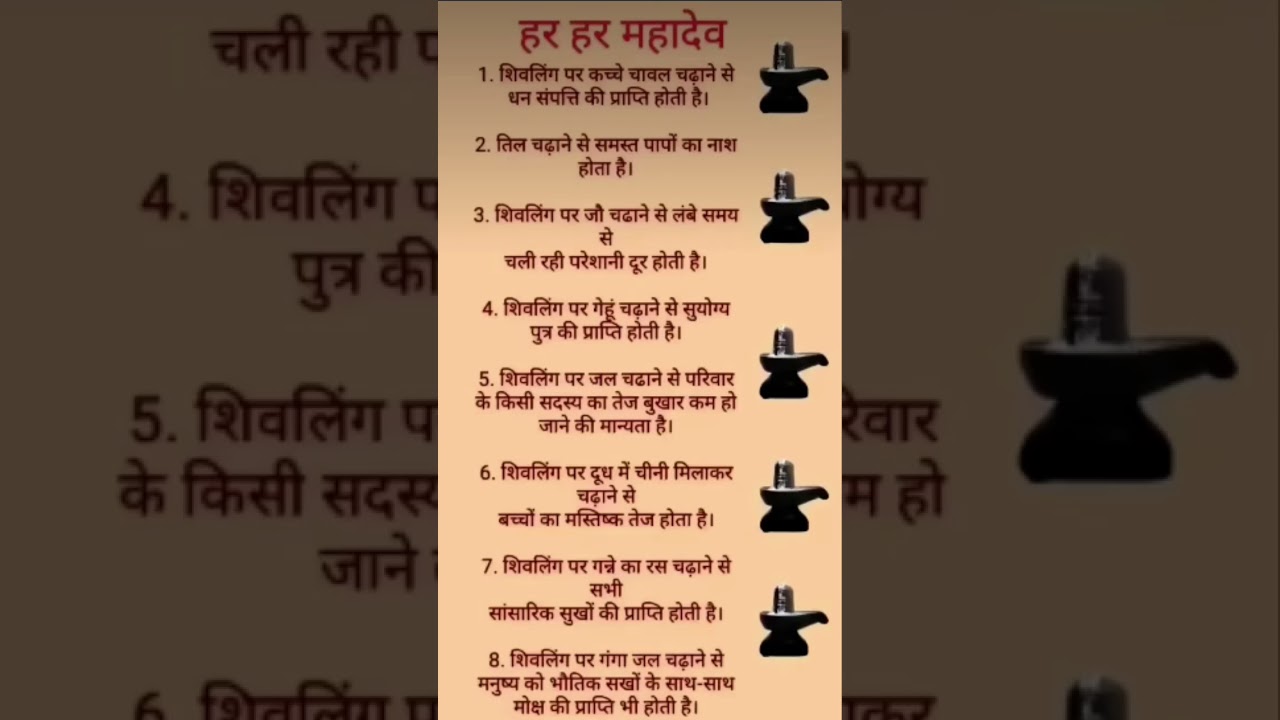 हर हर महादेव
1. शिवलिंग पर कच्चे चावल चढ़ाने से
धन संपत्ति की प्राप्ति होती है।
2. तिल चढ़ाने से समस्त पापों का नाश
होता है।
3. शिवलिंग पर जौ चढाने से लंबे समय
से
चली रही परेशानी दूर होती है।
4. शिवलिंग पर गेहूं चढ़ाने से सुयोग्य
पुत्र की प्राप्ति होती है।
5. शिवलिंग पर जल चढाने से परिवार
के किसी सदस्य का तेज बुखार कम हो
जाने की मान्यता है।
6. शिवलिंग पर दूध में चीनी मिलाकर
चढ़ाने से
बच्चों का मस्तिष्क तेज होता है।
7. शिवलिंग पर गन्ने का रस चढ़ाने से
सभी
सांसारिक सुखों की प्राप्ति होती है।
8. शिवलिंग पर गंगा जल चढ़ाने से
मनुष्य को भौतिक सखों के साथ-साथ
मोक्ष की प्राप्ति भी होती है।